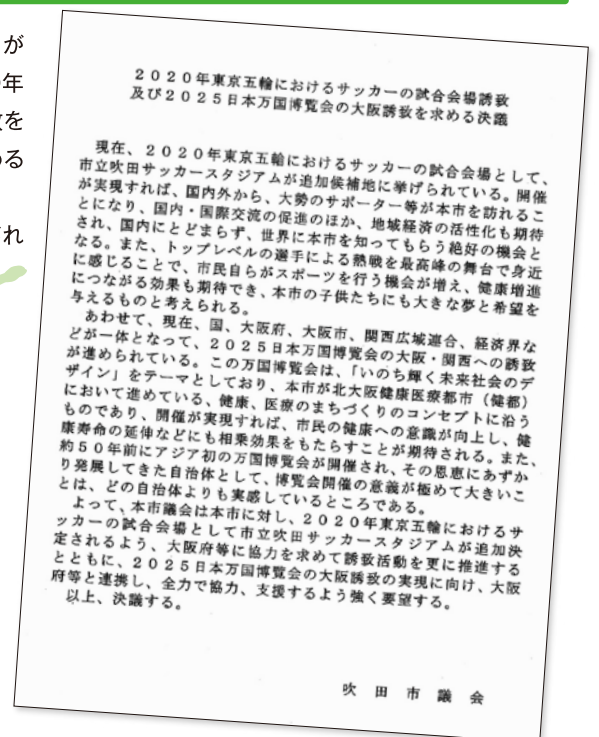 が
年
を
る
れ
2020年東京五輪におけるサッカーの試合会場誘致
及び2025日本万国博覧会の大阪誘致を求める決議
現在、2020年東京五輪におけるサッカーの試合会場として、
市立吹田サッカースタジアムが追加候補地に挙げられている。開催
が実現すれば、国内外から、大勢のサポーター等が本市を訪れるこ
とになり、国内・国際交流の促進のほか、地域経済の活性化も期待
され、国内にとどまらず、世界に本市を知ってもらう絶好の機会と
なる。また、トップレベルの選手による熱戦を最高峰の舞台で身近
に感じることで、市民自らがスポーツを行う機会が増え、健康増進
につながる効果も期待でき、本市の子供たちにも大きな夢と希望を
与えるものと考えられる。
あわせて、現在、国、大阪府、大阪市、関西広域連合、経済界な
どが一体となって、2025日本万国博覧会の大阪・関西への誘致
が進められている。この万国博覧会は、「いのち輝く未来社会のデ
ザイン」をテーマとしており、本市が北大阪健康医療都市（健都）
において進めている、健康、医療のまちづくりのコンセプトに沿う
ものであり、開催が実現すれば、市民の健康への意識が向上し、健
康寿命の延伸などにも相乗効果をもたらすことが期待される。また、
約50年前にアジア初の万国博覧会が開催され、その恩恵にあずか
り発展してきた自治体として、博覧会開催の意義が極めて大きいこ
とは、どの自治体よりも実感しているところである。
よって、本市議会は本市に対し、2020年東京五輪におけるサ
ッカーの試合会場として市立吹田サッカースタジアムが追加決
定されるよう、大阪府等に協力を求めて誘致活動を更に推進する
とともに、2025日本万国博覧会の大阪誘致の実現に向け、大阪
府等と連携し、全力で協力、支援するよう強く要望する。
以上、決議する。
吹田市議会